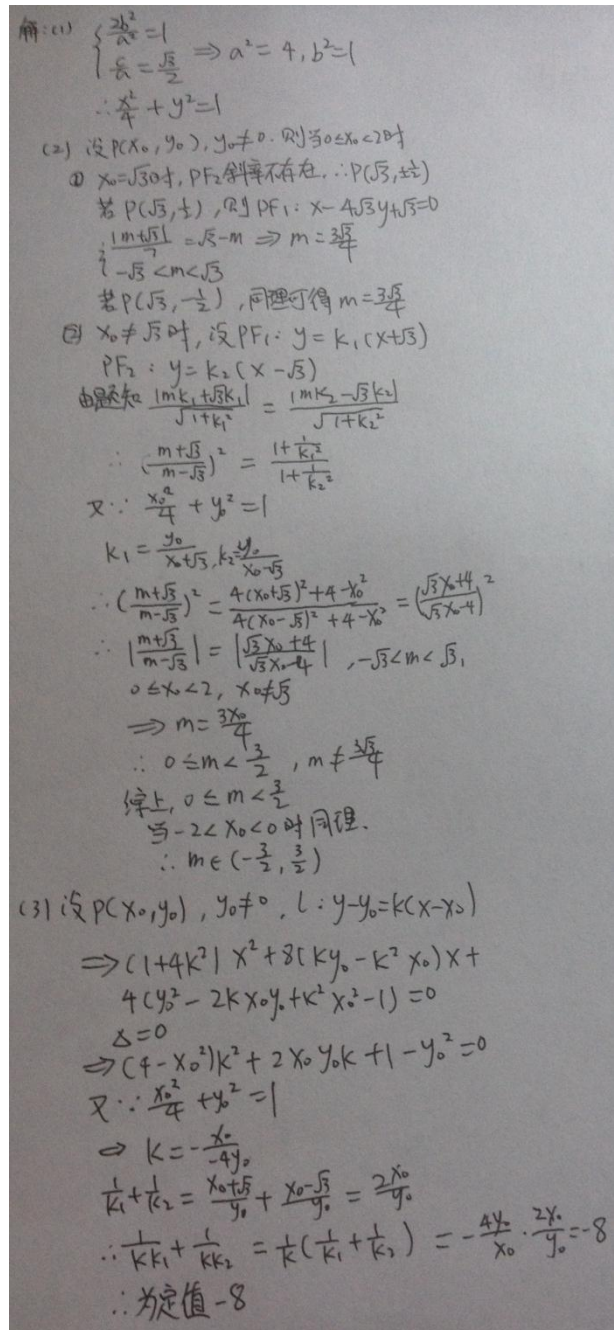 解:(1) { 2b²/a = 1
c/a = √3/2 ⇒ a² = 4, b² = 1
∴ x²/4 + y² = 1
(2) 设P(x₀, y₀), y₀≠0. 则当0≤x₀<2时
① x₀=√3时, PF₂斜率不存在, ∴P(√3, ±½)
若P(√3, ½), 则PF₁: x - 4√3y + √3 = 0
{ |m+√3|/7 = √3 - m ⇒ m = 3√3/4
-√3 < m < √3
若P(√3, -½), 同理可得 m = 3√3/4
② x₀ ≠ √3时, 设PF₁: y = k₁(x+√3)
PF₂: y = k₂(x - √3)
由题知 |mk₁+√3k₁|/√(1+k₁²) = |mk₂-√3k₂|/√(1+k₂²)
∴ (m+√3/m-√3)² = (1+1/k₁²)/(1+1/k₂²)
又∵ x₀²/4 + y₀² = 1
k₁ = y₀/(x₀+√3), k₂ = y₀/(x₀-√3)
∴ (m+√3/m-√3)² = (4(x₀+√3)²+4-x₀²)/(4(x₀-√3)²+4-x₀²) = (√3x₀+4/√3x₀-4)²
∴ |m+√3/m-√3| = |√3x₀+4/√3x₀-4|, -√3<m<√3,
0≤x₀<2, x₀≠√3
⇒ m = 3x₀/4
∴ 0≤m<3/2, m≠3√3/4
综上, 0≤m<3/2
当-2<x₀<0时同理.
∴ m∈(-3/2, 3/2)
(3) 设P(x₀,y₀), y₀≠0, l: y-y₀=k(x-x₀)
⇒ (1+4k²)x² + 8(ky₀-k²x₀)x +
4(y₀²-2kx₀y₀+k²x₀²-1) = 0
Δ=0
⇒ (4-x₀²)k² + 2x₀y₀k + 1-y₀² = 0
又∵ x₀²/4 + y₀² = 1
⇒ k = -x₀/-4y₀
1/k₁ + 1/k₂ = (x₀+√3)/y₀ + (x₀-√3)/y₀ = 2x₀/y₀
∴ 1/kk₁ + 1/kk₂ = 1/k(1/k₁ + 1/k₂) = -4y₀/x₀ · 2x₀/y₀ = -8
∴ 为定值-8